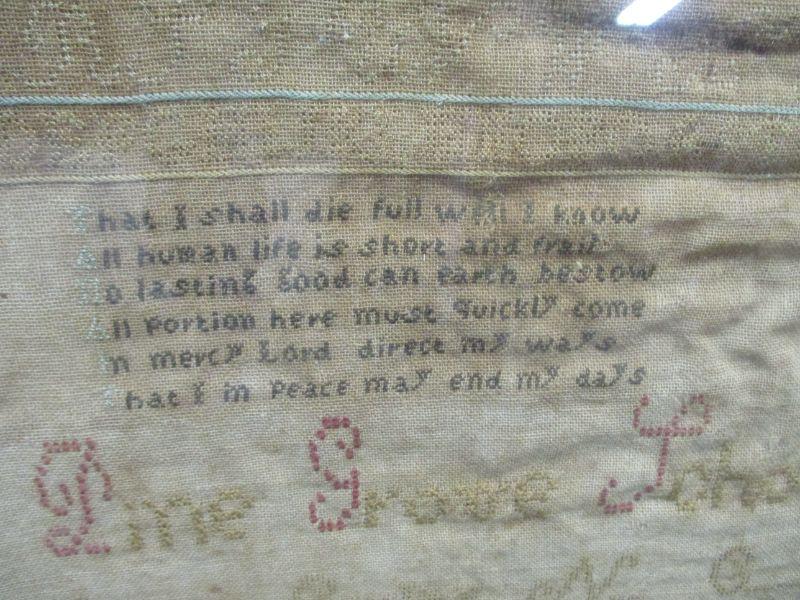 That I shall die full well I know
All human life is short and frail
No lasting good can earth bestow
All portion here must quickly come
In mercy Lord direct my ways
That I in Peace may end my days
Pine Grove Scho